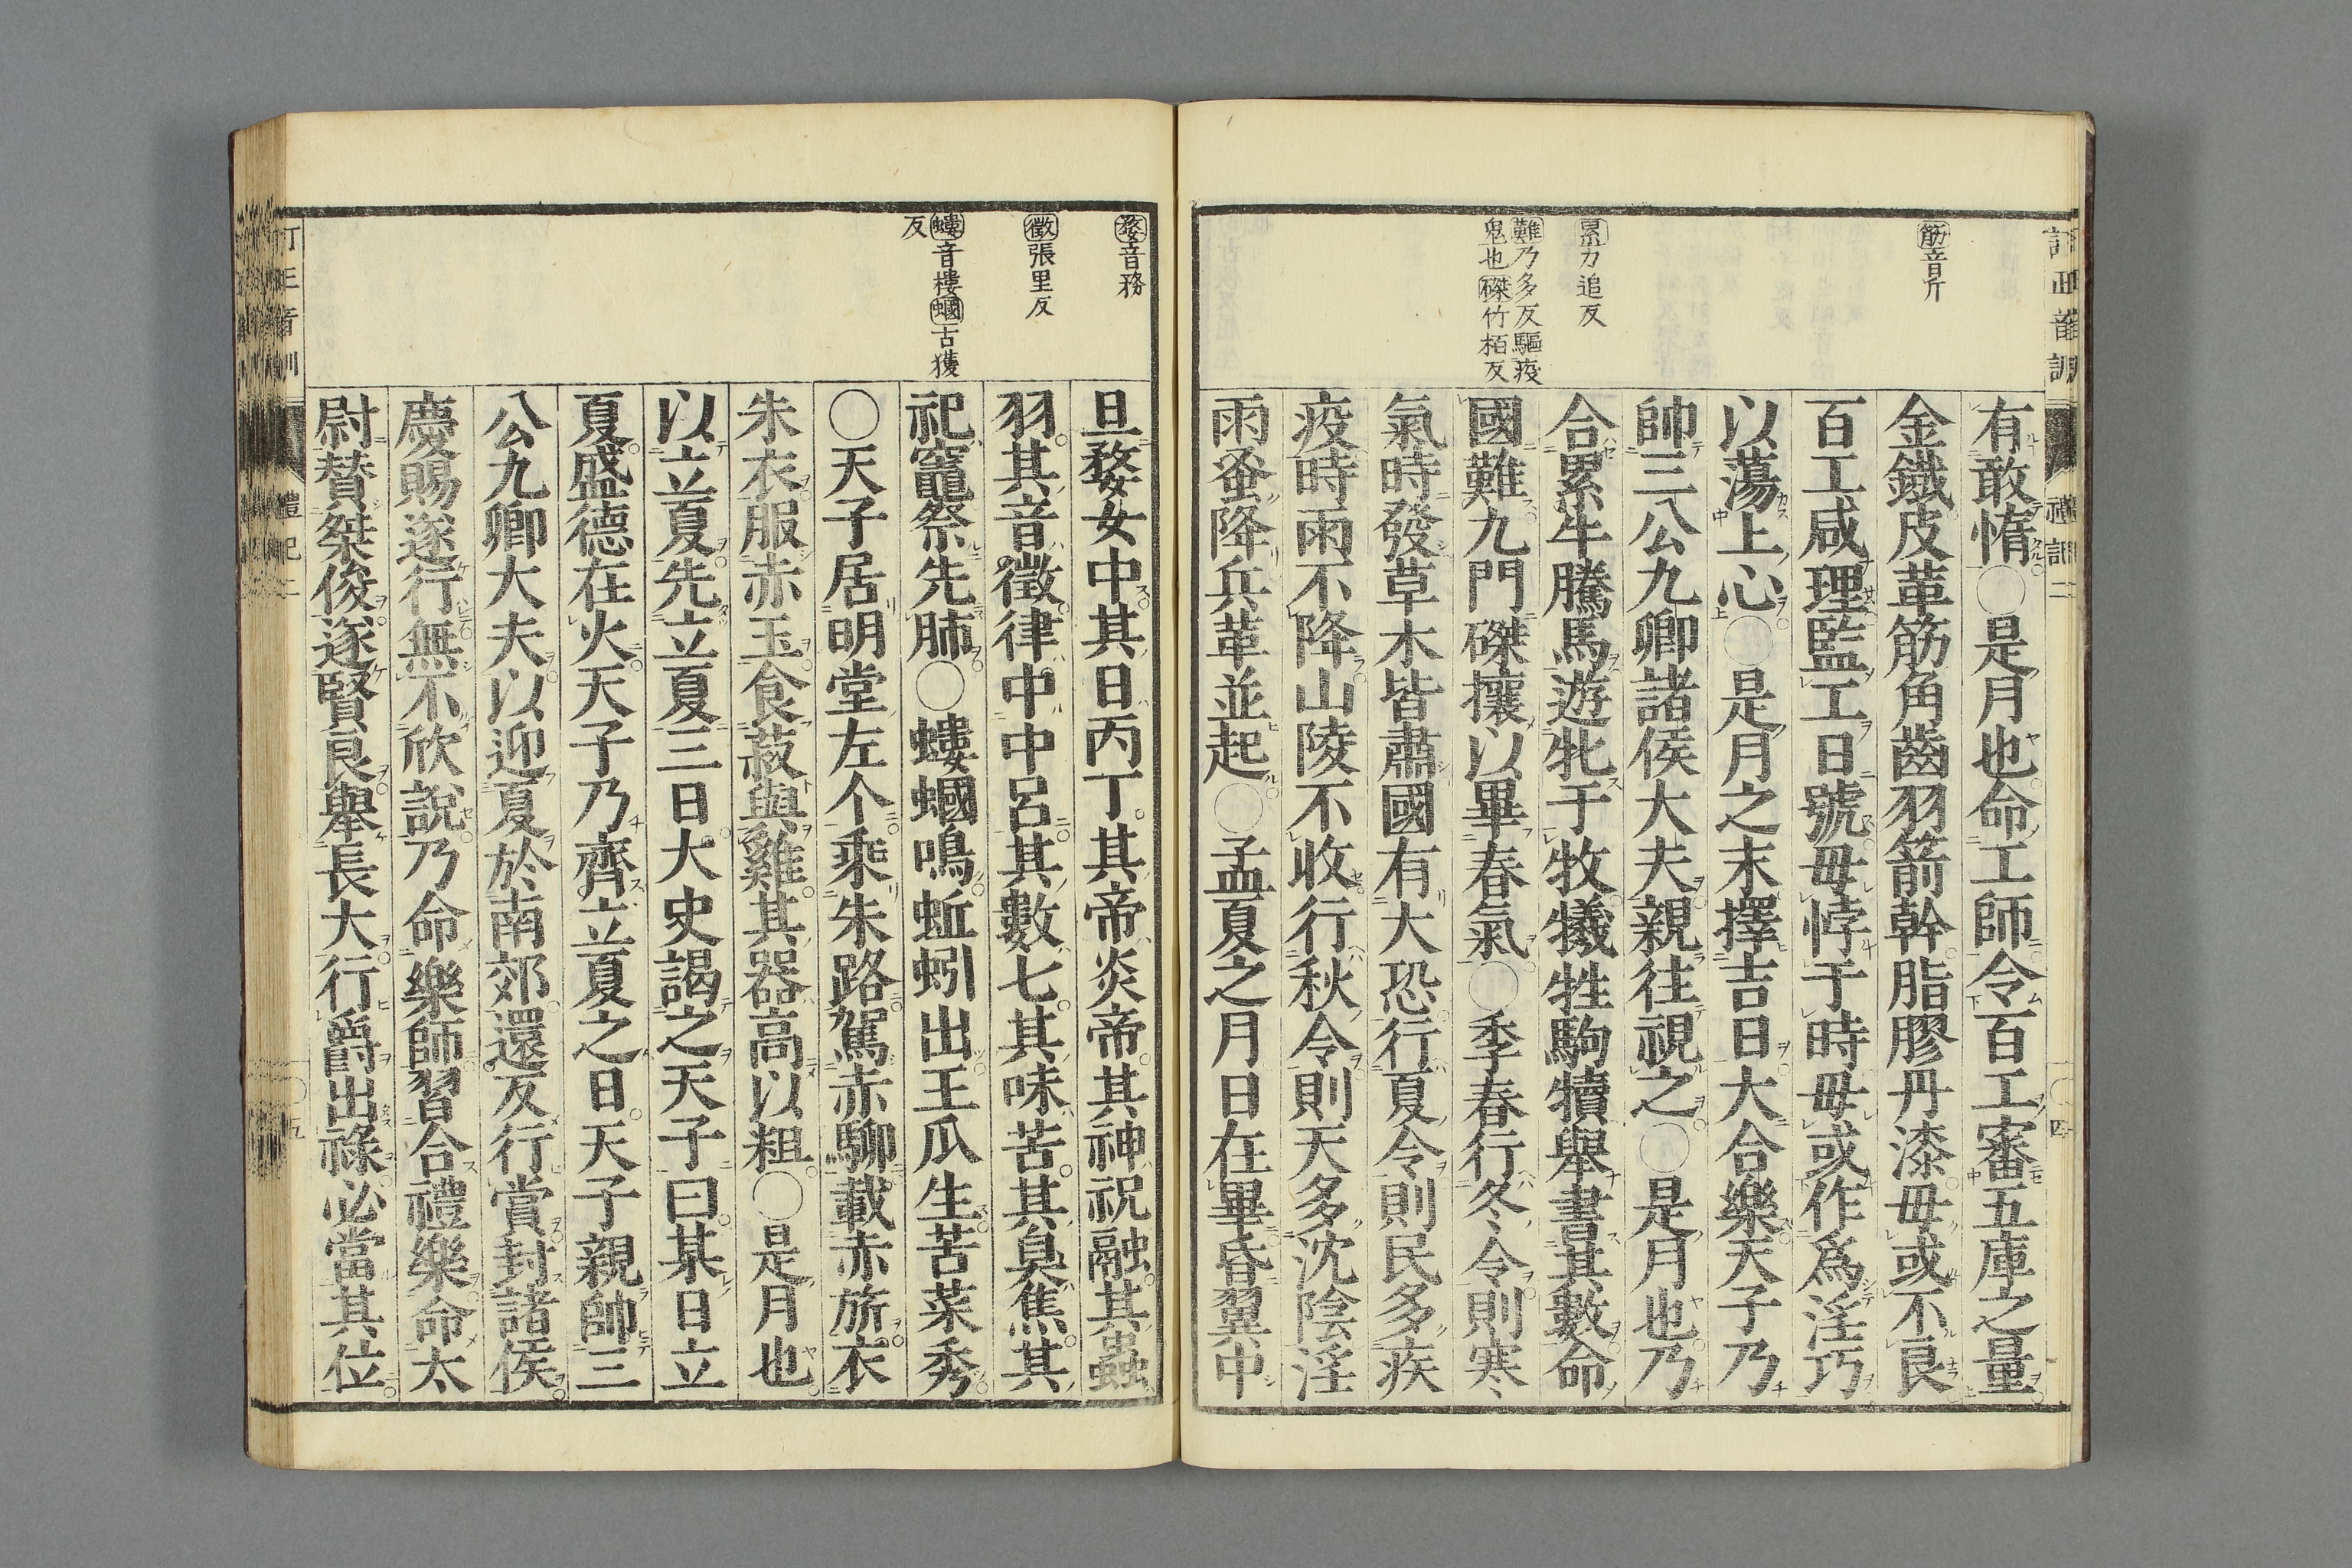 筋音斤
累力追反
難乃多反驅疫
鬼也磔竹栢反
有敢惰○是月也命工師令百工審五庫之量
金鐵皮革筋角齒羽箭幹脂膠丹漆毋或不良
百工咸理監工日號毋悖于時毋或作爲淫巧
以蕩上心○是月之末擇吉日大合樂天子乃
帥三公九卿諸侯大夫親往視之○是月也乃
合累牛騰馬遊牝于牧犧牲駒犢舉書其數命
國難九門磔攘以畢春氣○季春行冬令則寒
氣時發草木皆肅國有大恐行夏令則民多疾
疫時雨不降山陵不收行秋令則天多沈陰淫
雨蚤降兵革並起○孟夏之月日在畢昏翼中
婺音務
徵張里反
螻音樓蟈古獲
反
旦婺女中其日丙丁其帝炎帝其神祝融其蟲
羽其音徵律中中呂其數七其味苦其臭焦其
祀竈祭先肺○螻蟈鳴蚯蚓出王瓜生苦菜秀
○天子居明堂左个乘朱路駕赤駵載赤旂衣
朱衣服赤玉食菽與雞其器高以粗○是月也
以立夏先立夏三日大史謁之天子曰某日立
夏盛德在火天子乃齊立夏之日天子親帥三
公九卿大夫以迎夏於南郊還反行賞封諸侯
慶賜遂行無不欣說乃命樂師習合禮樂命太
尉贊桀俊遂賢良舉長大行爵出祿必當其位